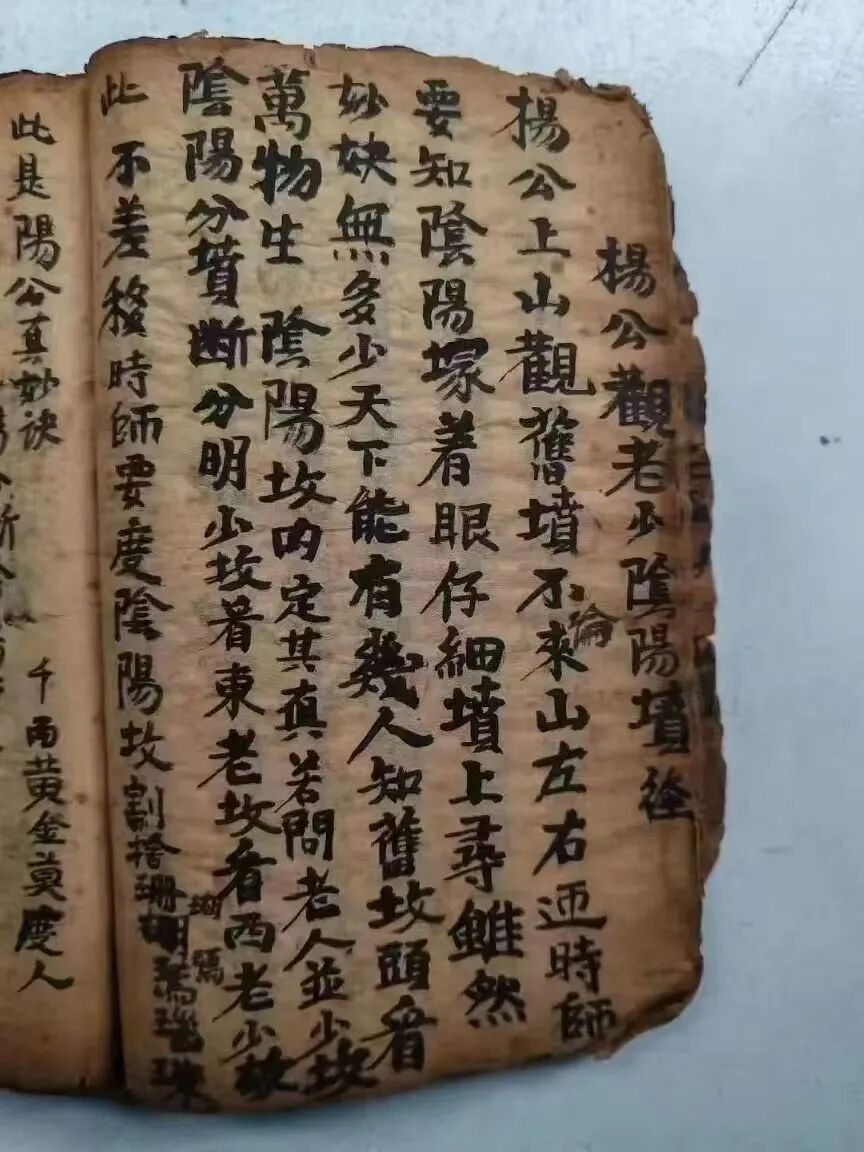 楊公觀老少陰陽墳径
楊公上山觀舊墳不來山左右迊時師
論
要知陰陽塚着眼仔細墳上尋雖然
妙妜無多少天下能有幾人知舊坟頭看
萬物生 陰陽坟内定其真若問老人並少坟
陰陽分墳断分明少坟着東老坟看西老少坟
此不差移時師要度陰陽坟割捨珊瑚
此是陽公真妙诀 千両黄金莫度人